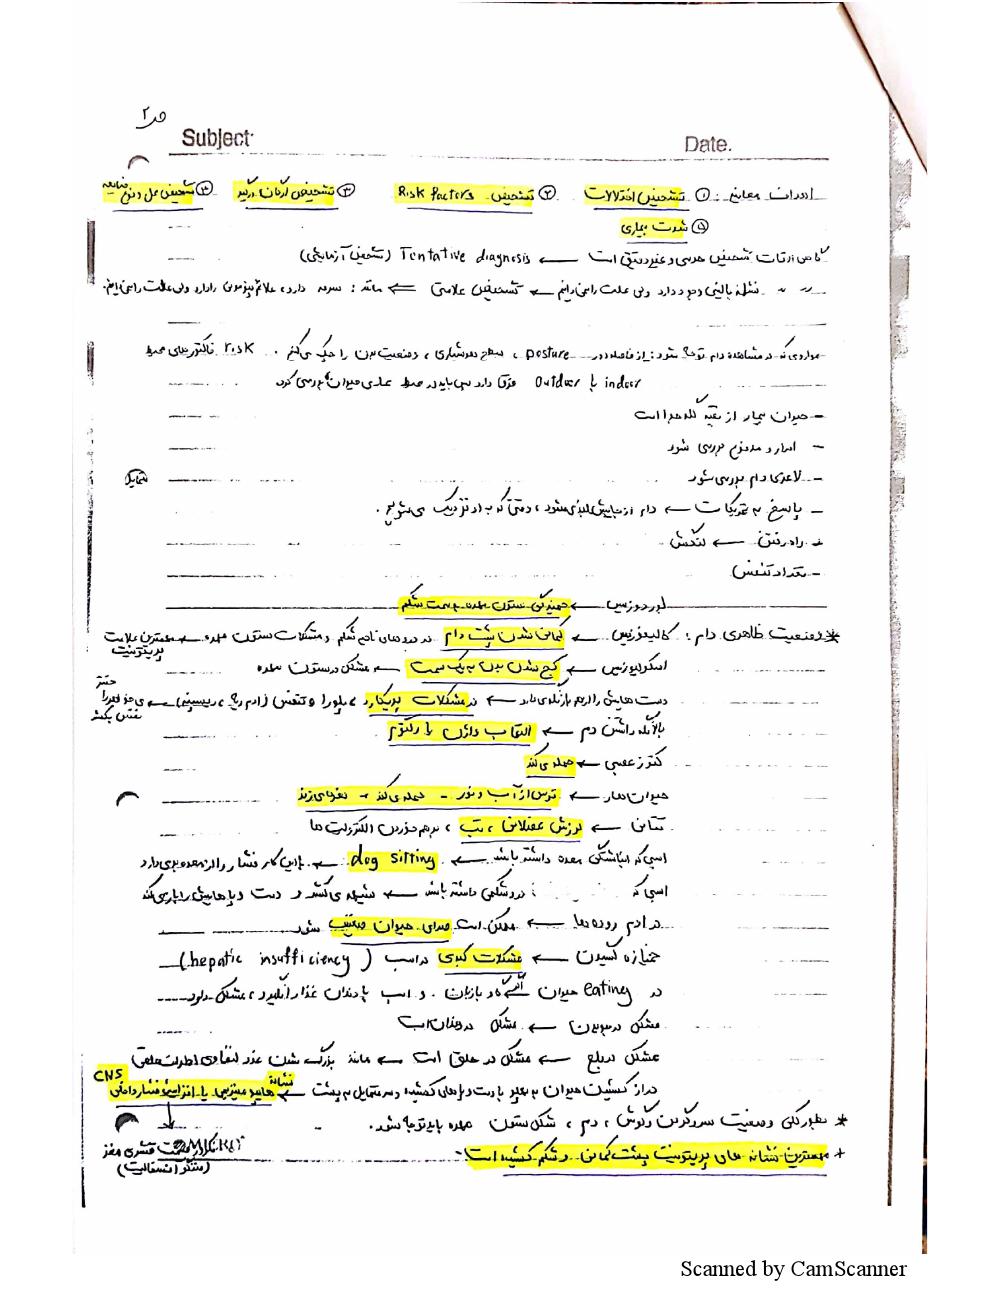 ص ۲
Subject:
Date.
اهداف معاینه : ① تشخیص اختلالات ② تشخیص Risk factors ③ تشخیص ارگان درگیر ④ تشخیص محل و نوع ضایعه
⑤ شدت بیماری
گاهی اوقات تشخیص حدسی و غیر دقیق است ← Tentative diagnosis (تشخیص آزمایشی)
نشانه بالینی وجود دارد ولی علت را نمی‌دانیم ← تشخیص علامتی ← مانند : سرفه دارد، علائم پنومونی را دارد ولی علت را نمی‌دانیم.
مواردی که در مشاهده دام توجه شود : از فاصله دور posture ، سطح هوشیاری ، وضعیت بدن را چک می‌کنم . risk فاکتورهای محیط
indoor یا Outdoor فرق دارد پس باید در محیط حیوان بررسی کرد
- حیوان بیمار از بقیه گله جدا است
- ادرار و مدفوع بررسی شود
- لاغری دام بررسی شود
- پاسخ به تحریکات ← دام از جایش بلند می‌شود ، وقتی که به او نزدیک می‌شویم .
- راه رفتن ← لنگش
- تعداد تنفس
لوردوزیس ← خمیدگی ستون مهره به سمت شکم
* وضعیت ظاهری دام : کایفوزیس ← کمانی شدن پشت دام در دردهای ناحیه شکم و مشکلات ستون مهره ← مهمترین علامت پریتونیت
اسکولیوزیس ← کج شدن بدن به یک سمت ← مشکل در ستون مهره
دست‌هایش را از هم باز نگه می‌دارد ← در مشکلات پریکارد ، پلورا و تنفس (ادم ریه ، پریسینی) ← نفس بکشد
بالا نگه داشتن دم ← التهاب واژن یا رکتوم
کتوز عصبی ← حمله می‌کند
حیوان هار ← ترس از آب و نور - حمله می‌کند - نعره می‌زند
تتانی ← لرزش عضلانی ، تب ، بهم خوردن الکترولیت ها
اسبی که انباشتگی معده داشته باشد ← dog sitting ← با این کار فشار را از معده برمی‌دارد
اسبی که درد شکمی داشته باشد ← شیهه می‌کشد و دست و پاهایش را باز می‌کند
در ادم روده ها ← ممکن است صدای حیوان ضعیف شود
خمیازه کشیدن ← مشکلات کبدی در اسب (hepatic insufficiency)
در eating حیوان اگر گاو با زبان و اسب با دندان غذا را نگیرد ، مشکل دارد
مشکل در جویدن ← مشکل در دندان است
مشکل در بلع ← مشکل در حلق است ← مانند بزرگ شدن غدد لنفاوی اطراف حلق
دراز کشیدن حیوان به پهلو با دست و پاهای کشیده و سر متمایل به پشت ← نشانه یا افزایش فشار داخلی CNS
* بطور کلی وضعیت سر و گردن و گوش ، دم ، شکل ستون مهره باید توجه شود .
قشری مغز
+ مهمترین نشانه های پریتونیت پشت کمانی و شکم کشیده است .
Scanned by CamScanner